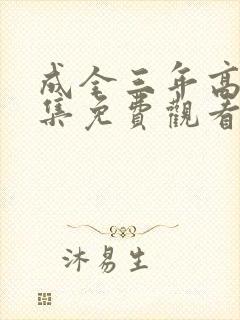 成全三年高
集免費觀看
沐易生